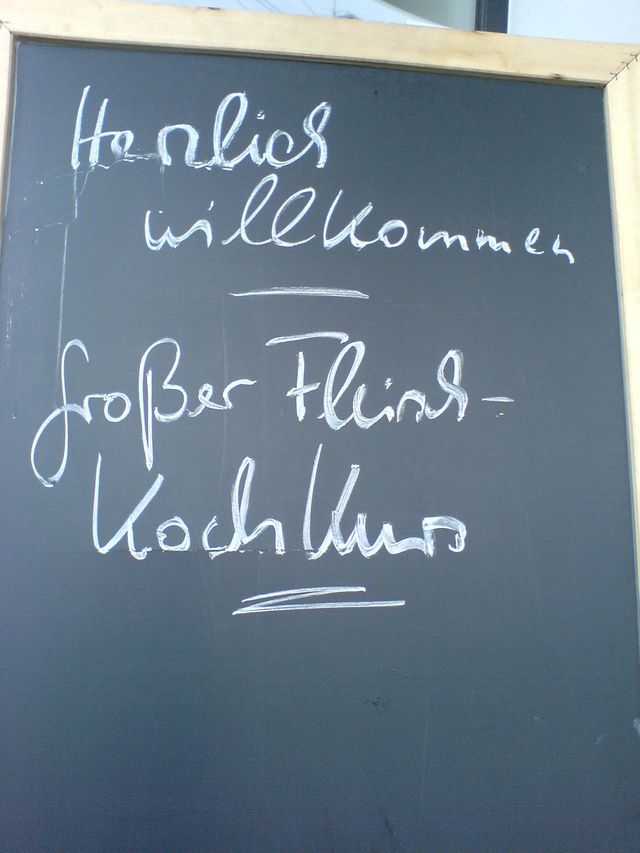 Herzlich
willkommen
Großer Fleisch-
Kochkurs